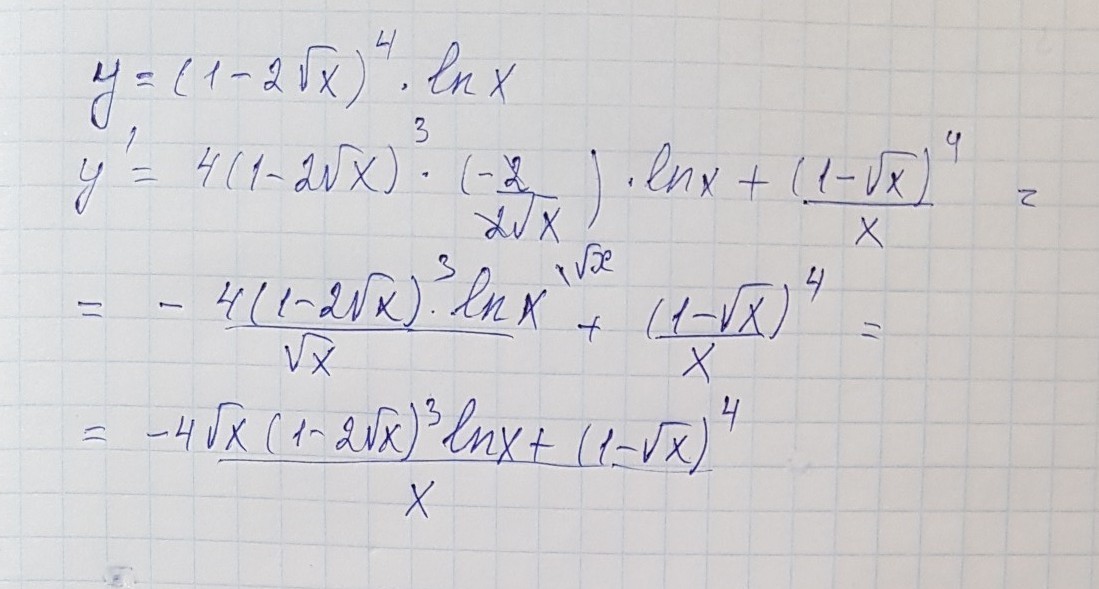 y = (1 - 2√x)⁴ · ln x
y' = 4(1 - 2√x)³ · (-2/(2√x)) · ln x + (1 - √x)⁴/x =
= - 4(1 - 2√x)³ · ln x \√x / √x + (1 - √x)⁴/x =
= (-4√x (1 - 2√x)³ ln x + (1 - √x)⁴)/x